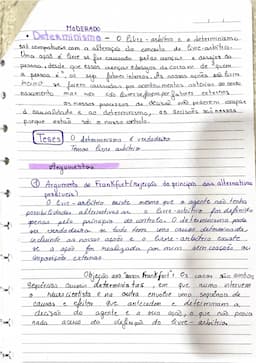 MODERADO
• Determinismo - O livre-arbítrio e o determinismo
são compatíveis com a alteração do conceito de livre-arbítrio.
Uma ação é livre se for causada pelas crenças e desejos da
pessoa, desde que essas crenças e desejos "quem
a pessoa é", ou seja fatores internos. As nossas ações são livres
mesmo se forem causadas por acontecimentos anteriores ao nosso
nascimento mas não são livres se forem por fatores externos
os nossos processos de decisão não poderem escapar
à causalidade e ao determinismo, as decisões são nossas
porque estão sob o nosso controlo.
Teses O determinismo é verdadeiro
Temos livre arbítrio
Argumentos
① Argumento de Frankfurt (rejeição do princípio das alternativas
possíveis)
O livre-arbítrio existe mesmo que o agente não tenha
possibilidades alternativas se o livre-arbítrio for definido
apenas pelo princípio do controlo. O determinismo pode
ser verdadeiro se tudo tem uma causa determinada
incluindo as nossas ações e o livre-arbítrio existe
se a ação for realizada por mim sem coações ou
imposições externas.
Objeção aos "casos Frankfurt": Os casos são ambos
sequências causais deterministas, em que numa intervém
o neurocientista e na outra envolve uma sequência de
causas e efeitos que antecedem e determinam a
decisão do agente e a sua ação, o que não prova
nada acerca da definição do livre-arbítrio.